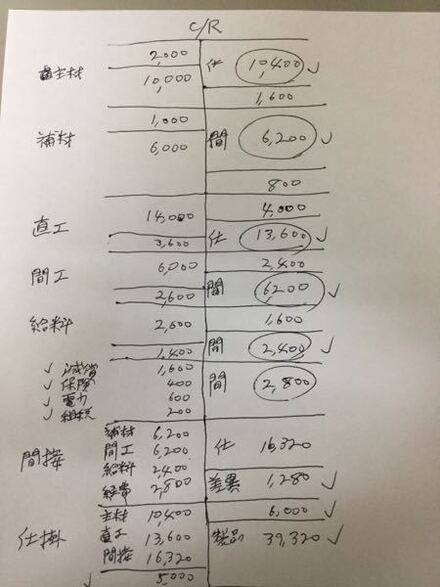 C/R
2,000 仕 10,400 ✓
主材 10,000
1,600
1,000
補材 6,000 間 6,200 ✓
800
4,000
直工 14,000 仕 13,600 ✓
3,600
間工 6,000 2,400
2,600 間 6,200 ✓
給料 2,600 1,600
1,400 間 2,400 ✓
✓ 減償 1,600
✓ 保険 400 間 2,800 ✓
✓ 電力 600
✓ 租税 200
補材 6,200
間接 間工 6,200 仕 16,320
給料 2,400
経費 2,800 差異 1,280 ✓
主材 10,400 6,000 ✓
仕掛 直工 13,600 製品 39,320 ✓
間接 16,320
✓ 5,000